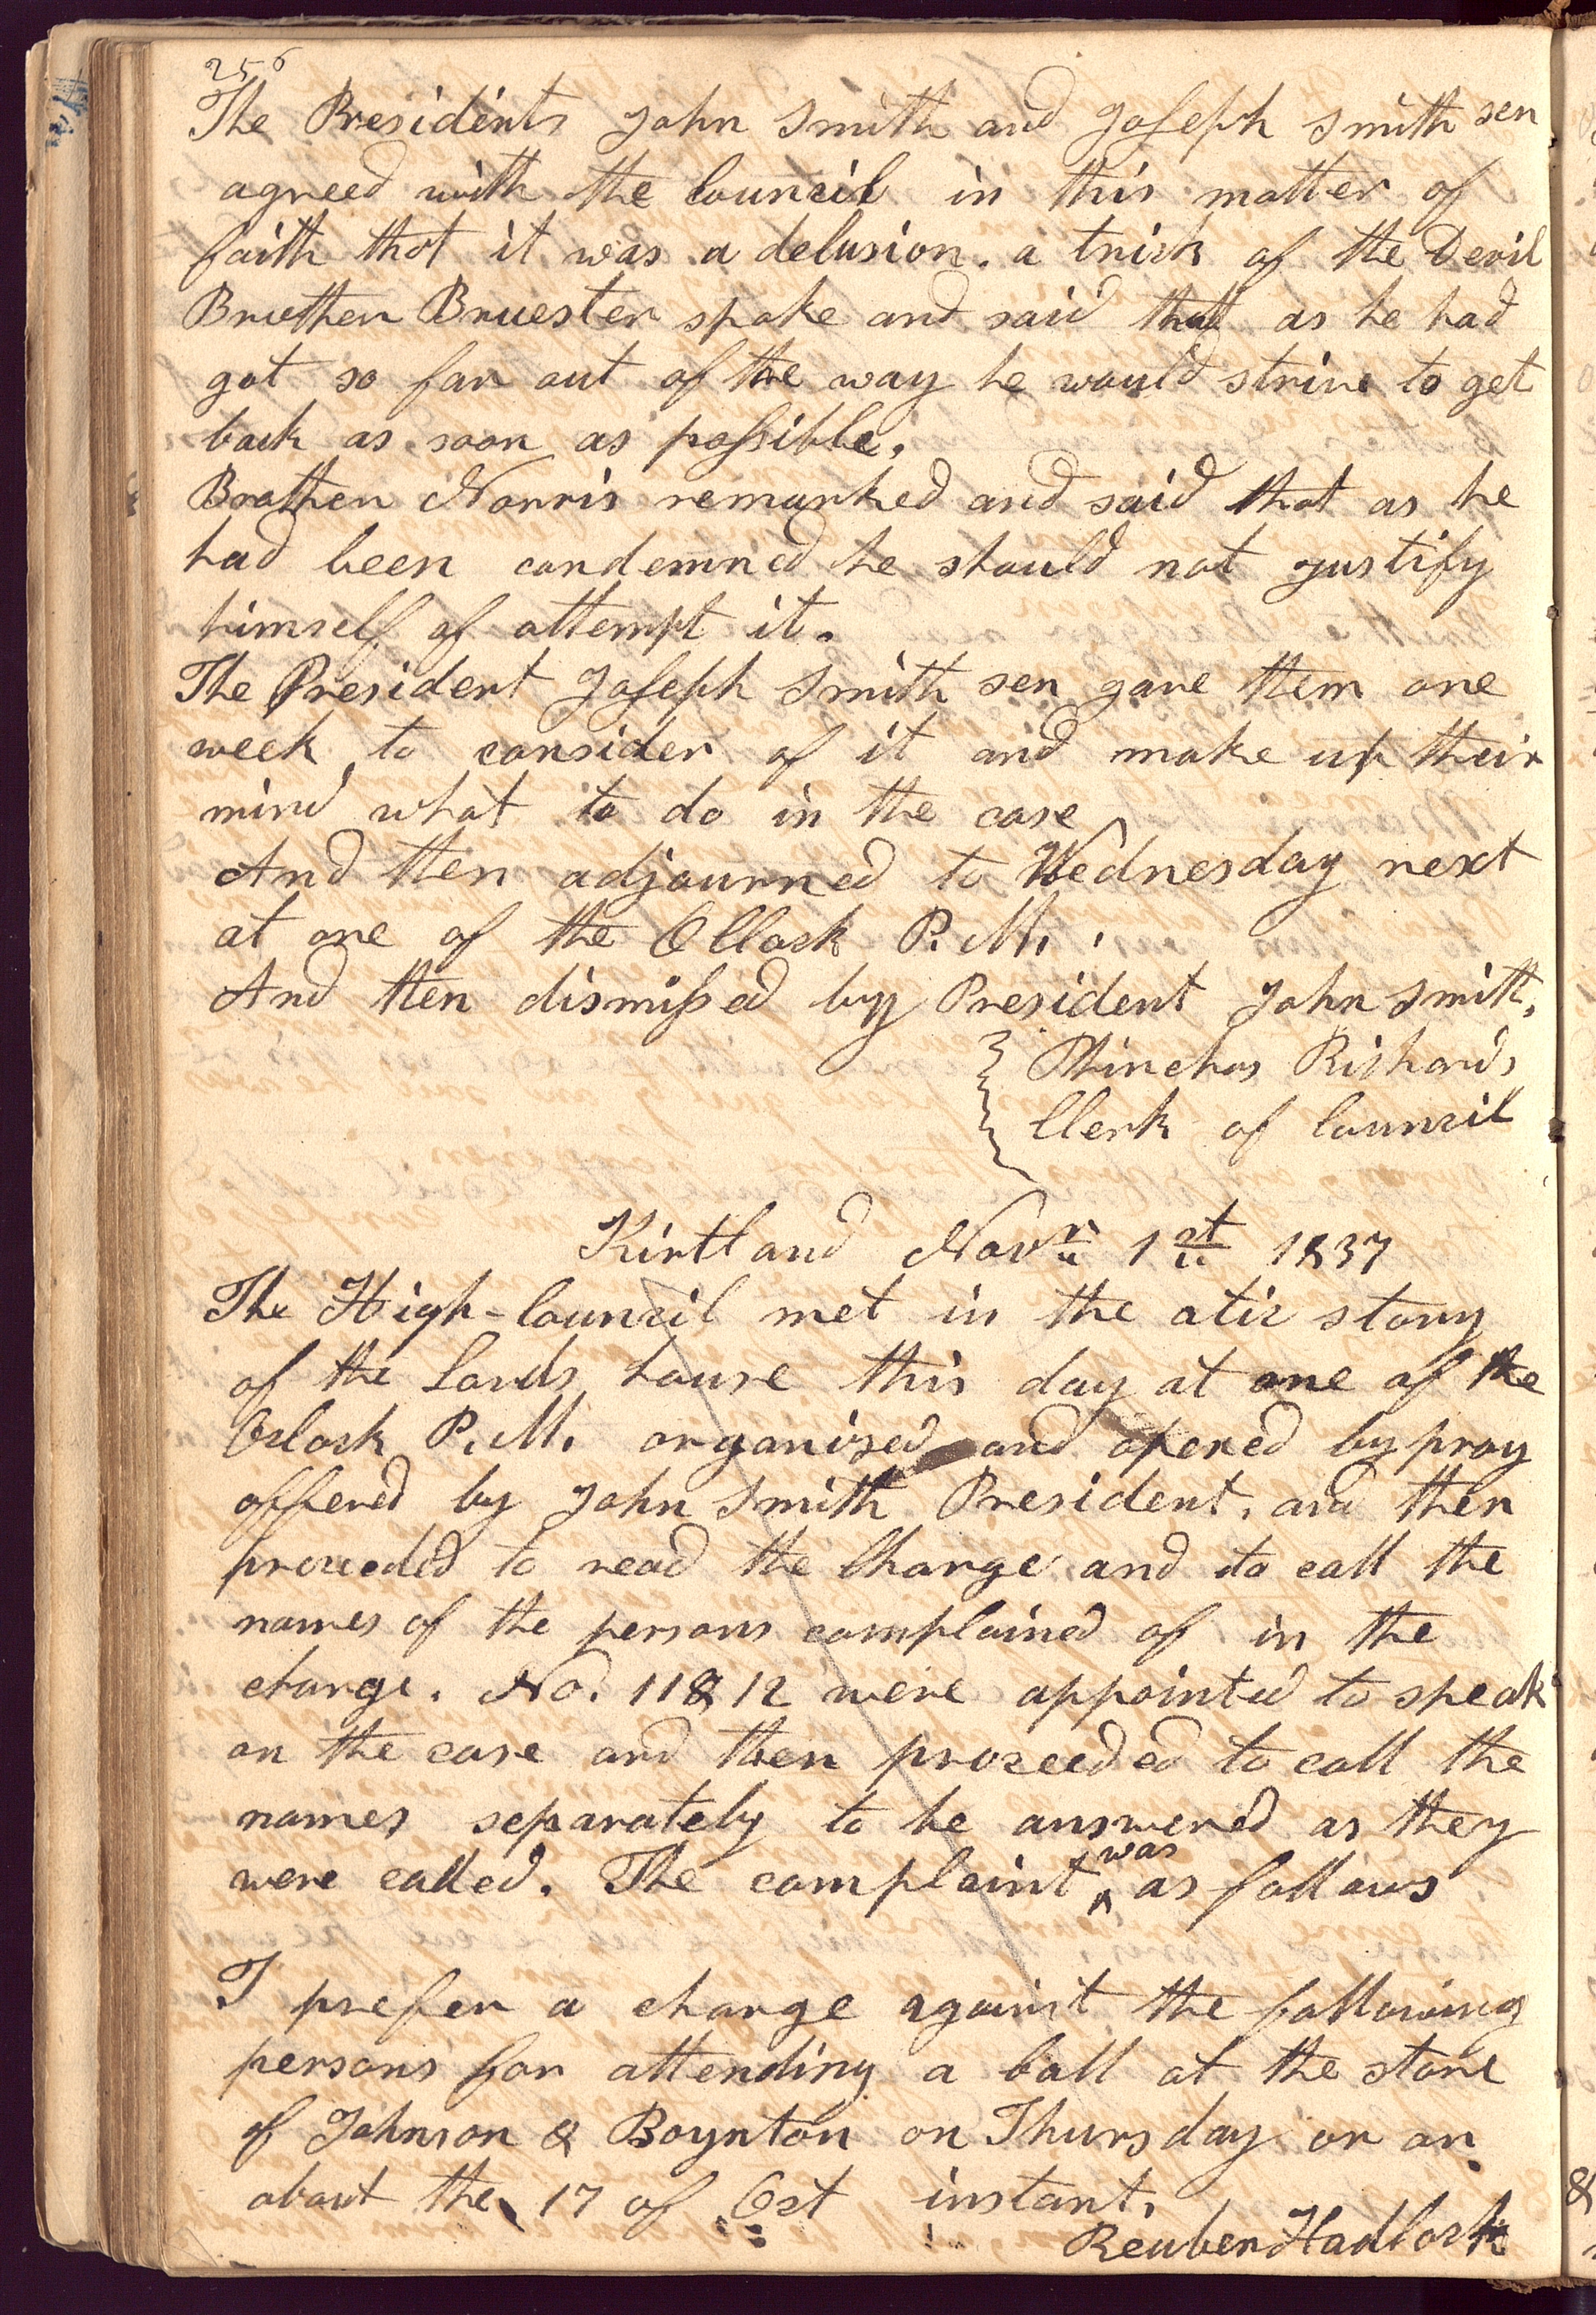 256
The Presidents John Smith and Joseph Smith sen
agreed with the Council in this matter of
faith that it was a delusion. a trick of the Devil
Bruther Bruester spoke and said that as he had
got so far out of the way he would strive to get
back as soon as possible.
Brother Norris remarked and said that as he
had been condemned he should not justify
himself of attempt it.
The President Joseph Smith sen gave them one
week to consider of it and make up their
mind what to do in the case
And then adjourned to Wednesday next
at one of the Oclock P. M.
And then dismissed by President John Smith.
Phinehas Richards
Clerk of Council
Kirtland Novr 1st 1837
The High-Council met in the atic story
of the Lords house this day at one of the
Oclock P. M. organized and opened by pray
offered by John Smith President. and then
proceeded to read the Charge and to call the
names of the persons complained of in the
charge. No. 11 & 12 were appointed to speak
on the case and then proceeded to call the
names separately to be answered as they
were called. The complaint was as follows
I prefer a charge against the following
persons for attending a ball at the store
of Johnson & Boynton on Thursday or on
about the 17 of Oct instant.
Reuben Hadlock